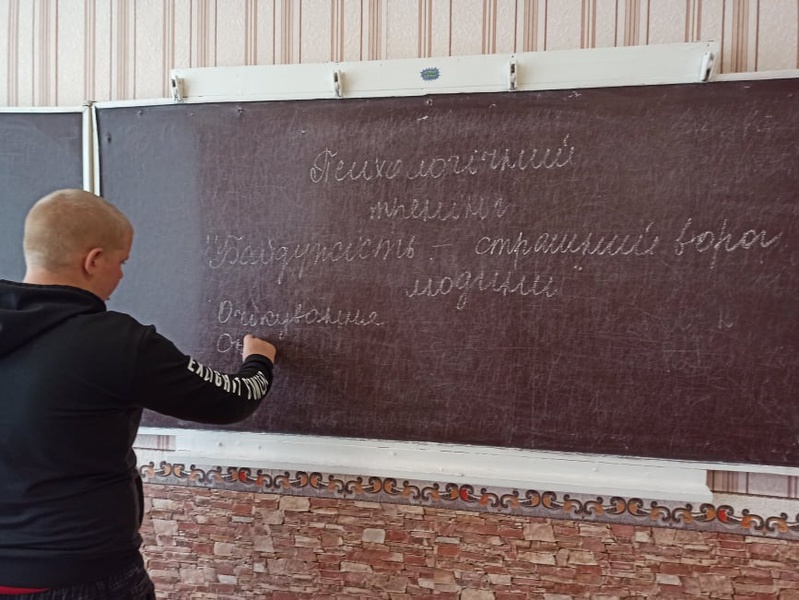 Психологічний
тренінг
"Байдужість – страшний ворог
людини"
Очікування